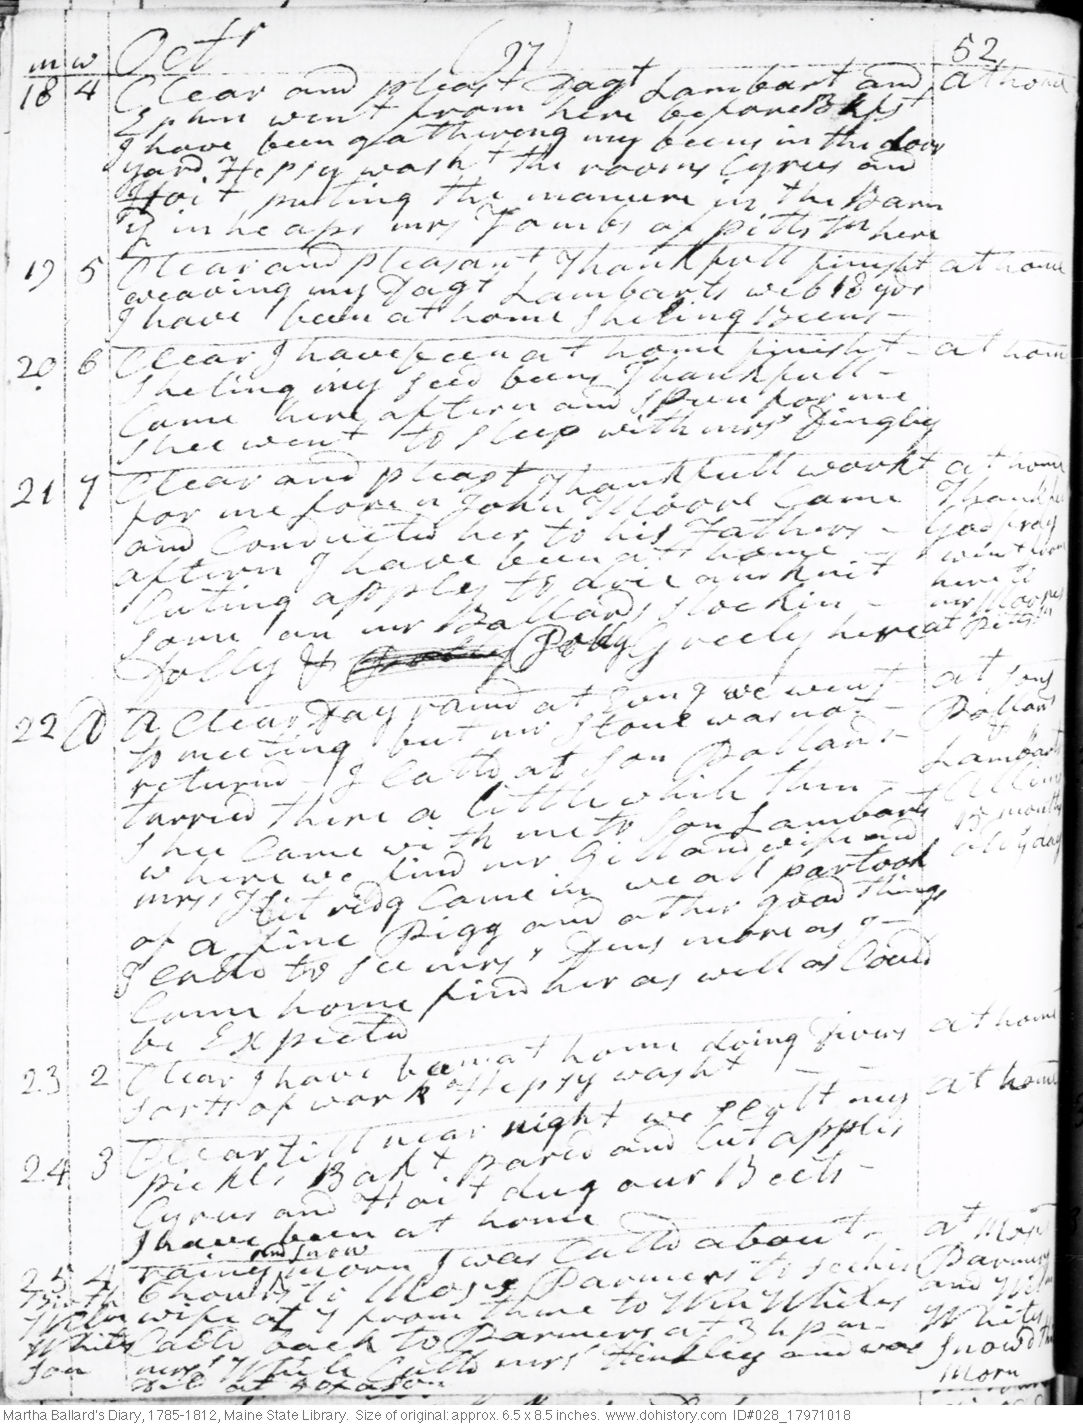 m w Octr (27) 52
18 4 Clear and pleast Dagt Lambart and at home
Ephm went from here before Bkfst
I have been gathering my beens in the door
yard. Hepsy washt the rooms Cyrus and
Hoit puting the manure in the Barn
yd in heaps mrs Tombs of pittstn here
19 5 Clear and pleasant Thankfull finisht at home
weaving my Dagt Lambarts web 18 yds
I have been at home Sheling Beens -
20 6 Clear I have been at home finisht - at hom
Sheling my seed beens Thankfull -
Came here aftern and spun for me
shee went to sleep with mrs Dingley
21 7 Clear and pleast Thankfull workt at home
for me foren John Moore Came Thankfu
and Conducted her to his Fathers - Godfray
aftern I have been at home - went from
Cuting apples to drie and knit here to
some on mr Ballards stockin - mr Moores
Dolly & Polly Greely here at Pitts
22 D A Clear Day raind at Evng we went at sons
to meeting but mr Stone was not - Pollards
returnd I Calld at son Pollard - Lambarts
tarried there a little while then Allens
shee Came with me to son Lambarts 13 months
where we find mr Gill and wife and old y day
mrs Kitridg Came in we all partook
of a fine Pigg and other good things
I Calld to see mrs Dens more as I -
Came home find her as well as Could
be Expected
23 2 Clear I have been at home doing Divers at home
sorts of work Hepsy washt -
24 3 Clear till near night we scalt my at home
pickls Bakt pared and Cut apples
Cyrus and Hoit dug our Beets -
I have been at home
and snow
25 4 rainy morn I was Calld about - at Moss
Birth 6 hour to Moses Parmers to see his Parmers
Willm wife at 7 from thence to Wm Whites and Wm
Whites Calld back to Parmers at 3 h pm - Whites
son mrs White Calld mrs Hinkley and was Snowd this
Delt at 4 of a son Morn
Martha Ballard's Diary, 1785-1812, Maine State Library. Size of original: approx. 6.5 x 8.5 inches. www.dohistory.com ID#028_17971018